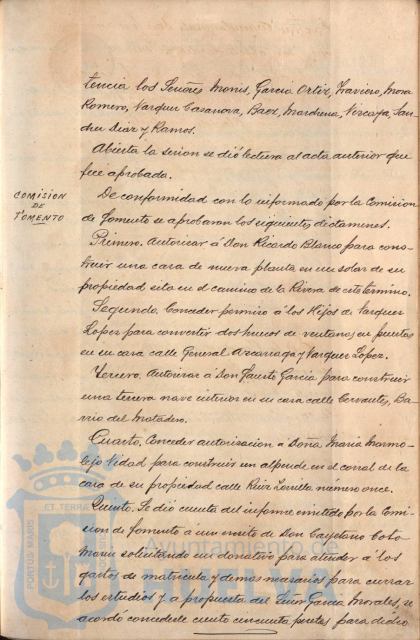 tencia los Señores Monis, Garcia Ortiz, Traviero, Mora
Romero, Vazquez Casanova, Baez, Marchena, Vizcaya, San-
chez Diaz y Ramos.
Abierta la sesion se dió lectura al acta anterior que
fué aprobada.
COMISION
DE
FOMENTO
De conformidad con lo informado por la Comision
de fomento se aprobaron los siguientes dictámenes.
Primero. Autorizar á Don Ricardo Blanco para cons-
truir una casa de nueva planta en un solar de su
propiedad sito en el camino de la Rivera de este termino.
Segundo. Conceder permiso á los Hijos de Vazquez
Lopez para convertir dos huecos de ventanas en puertas
en su casa calle General Azcarraga y Vazquez Lopez.
Tercero. Autorizar á Don Fausto Garcia para construir
una tercera nave interior en su casa calle Cervantes, Ba-
rrio del Matadero.
Cuarto. Conceder autorizacion a Doña Maria Marmo-
lejo Vidad para construir un alpende en el corral de la
casa de su propiedad calle Ruiz Zorrilla número once.
Quinto. Se dió cuenta del informe emitido por la Comi-
sion de fomento á un escrito de Don Cayetano Coto
solicitando un donativo para atender á los
gastos de matricula y demas necesarios para cursar
los estudios y a propuesta del Señor Garcia Morales, se
acordó concederle ciento cincuenta pesetas para dicho
PORTUS MARIS
ET TERRAE
Ayuntamiento de